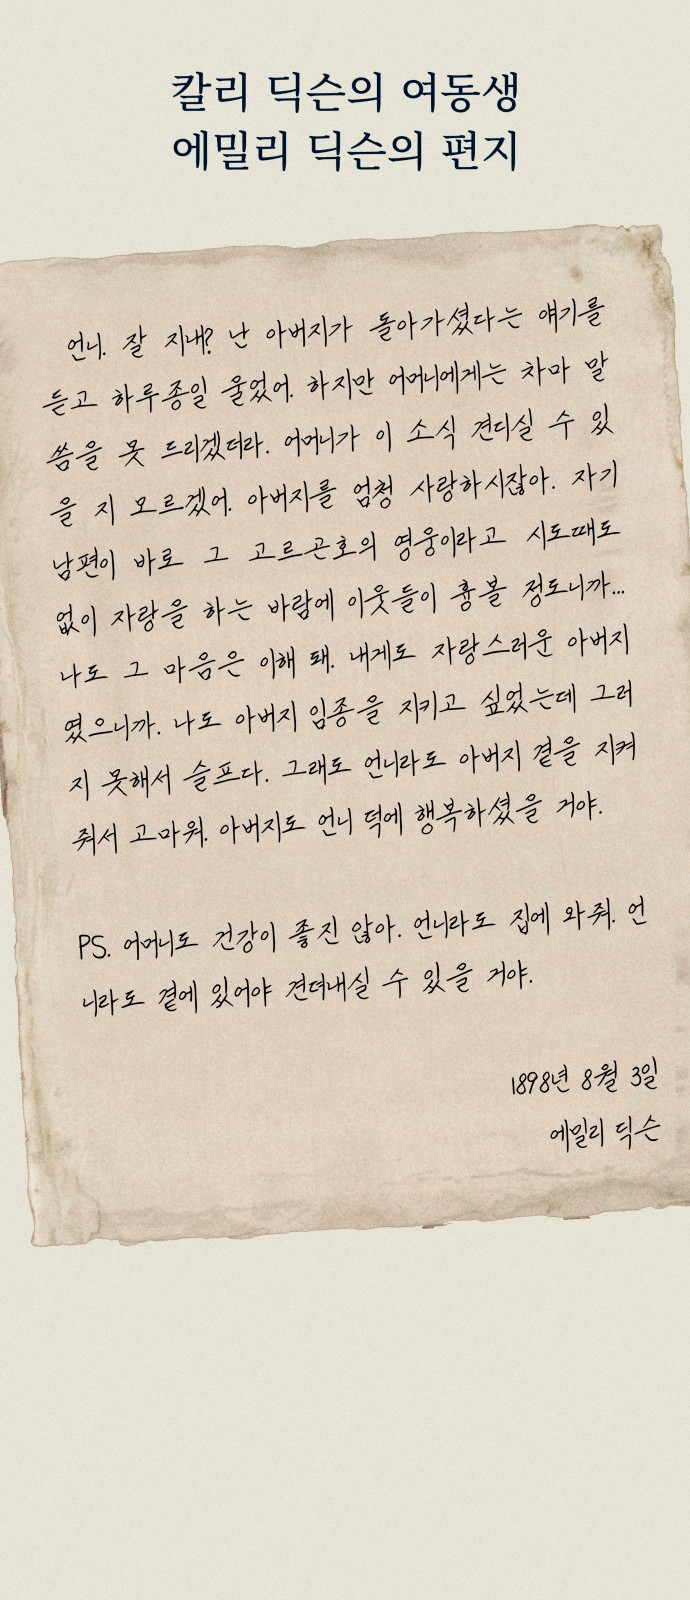 칼리 딕슨의 여동생
에밀리 딕슨의 편지
언니. 잘 지내? 난 아버지가 돌아가셨다는 얘기를
듣고 하루종일 울었어. 하지만 어머니에게는 차마 말
씀을 못 드리겠더라. 어머니가 이 소식 견디실 수 있
을 지 모르겠어. 아버지를 엄청 사랑하시잖아. 자기
남편이 바로 그 고르곤호의 영웅이라고 시도때도
없이 자랑을 하는 바람에 이웃들이 흉볼 정도니까...
나도 그 마음은 이해 돼. 내게도 자랑스러운 아버지
였으니까. 나도 아버지 임종을 지키고 싶었는데 그러
지 못해서 슬프다. 그래도 언니라도 아버지 곁을 지켜
줘서 고마워. 아버지도 언니 덕에 행복하셨을 거야.
PS. 어머니도 건강이 좋진 않아. 언니라도 집에 와줘. 언
니라도 곁에 있어야 견뎌내실 수 있을 거야.
1898년 8월 3일
에밀리 딕슨